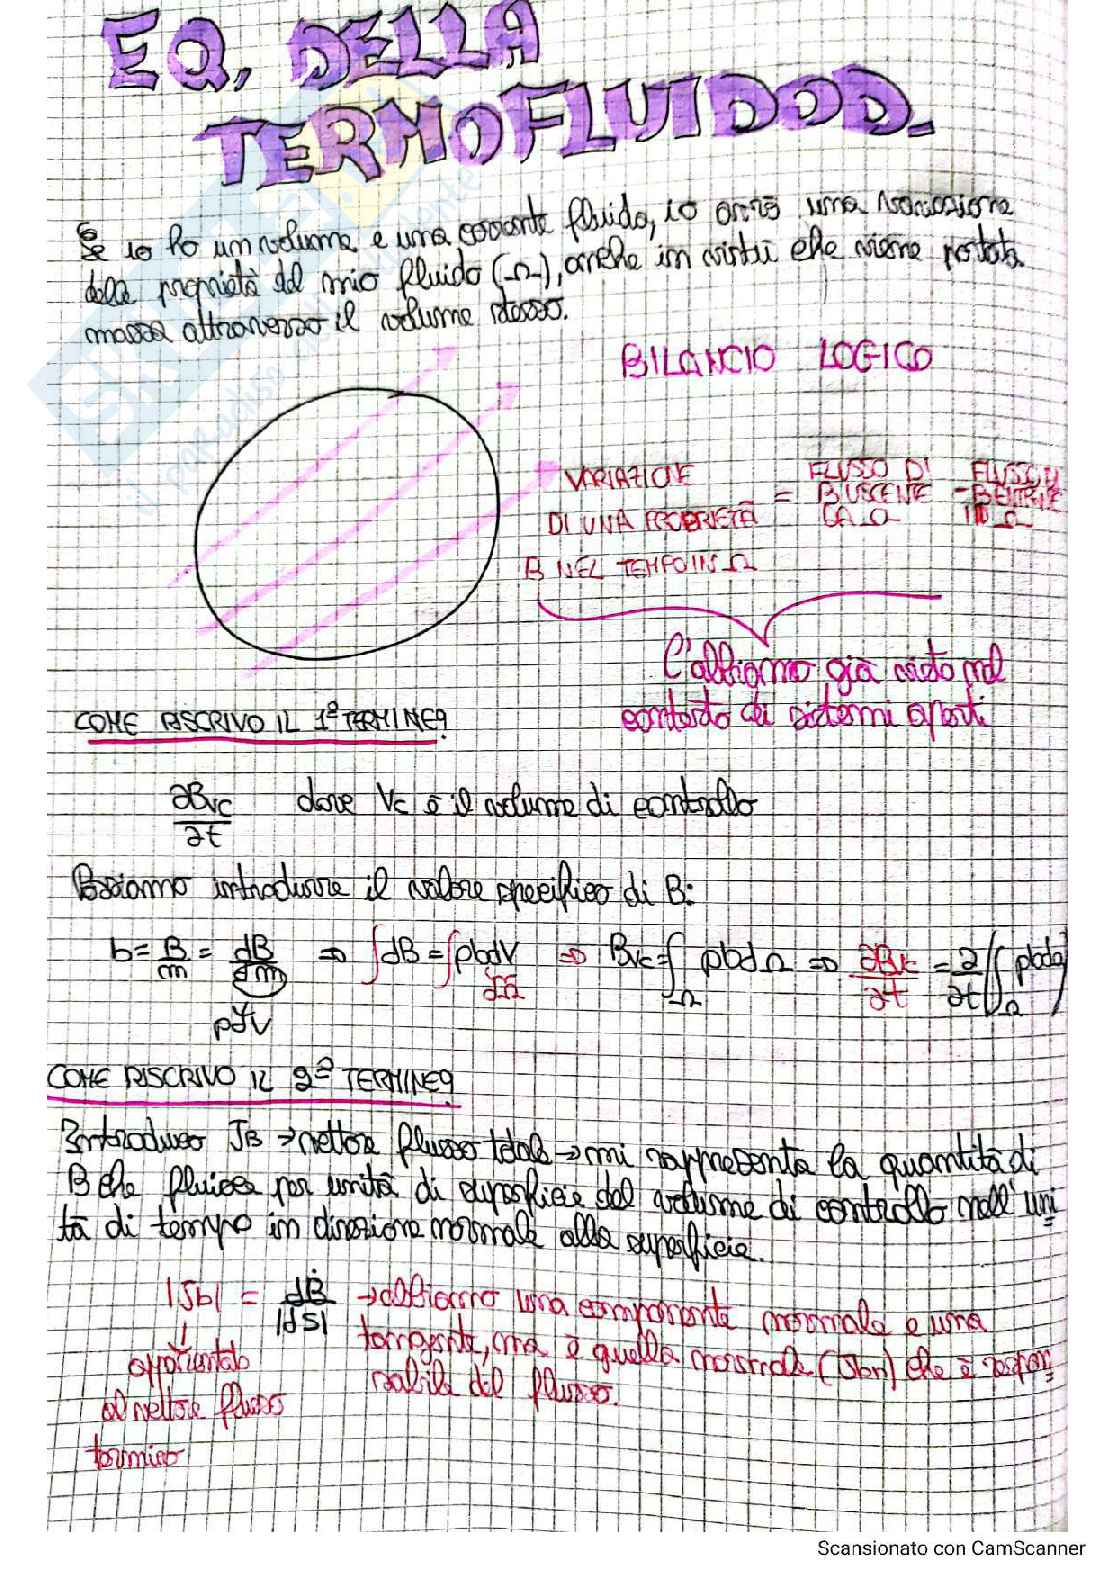 EQ. DELLA
TERMOFLUIDOD.
Se io ho un volume e una corrente fluida, io avrò una variazione
della proprietà del mio fluido (Ω), anche in virtù che viene portata
massa attraverso il volume stesso.
BILANCIO LOGICO
VARIAZIONE
DI UNA PROPRIETÀ
B NEL TEMPO IN Ω
=
FLUSSO DI
B USCENTE
DA Ω
-
FLUSSO DI
B ENTRANTE
IN Ω
L'abbiamo già visto nel
contesto di sistemi aperti
COME RISCRIVO IL 1º TERMINE?
∂Bvc/∂t dove Vc è il volume di controllo
Possiamo introdurre il valore specifico di B:
b = B/m = dB/dm ⇒ ∫dB = ∫ρbdV ⇒ Bvc = ∫Ω ρbdΩ ⇒ ∂Bvc/∂t = ∂/∂t(∫Ω ρbdΩ)
ρdV
dΩ
COME RISCRIVO IL 2º TERMINE?
Introduco JB → vettore flusso totale → mi rappresenta la quantità di
B che fluisce per unità di superficie del volume di controllo nell'uni
tà di tempo in direzione normale alla superficie.
|Jb| = dḂ/|dS| → abbiamo una componente normale e una
tangente, ma è quella normale (Jbn) che è respon
sabile del flusso.
al vettore flusso
termico
Scansionato con CamScanner